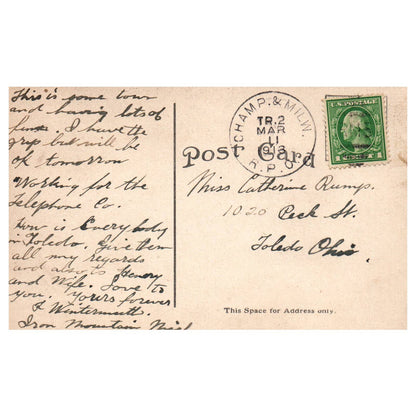 This is some town
and having lots of
fun. I have the
grip but will be
OK tomorrow
Working for the
Telephone Co.
How is Everybody
in Toledo. Give them
all my regards
and also to Henry
and Wife. Love to
you. Yours forever
F Wintermuth
Iron Mountain Mich
CHAMP. & MILW.
TR. 2
MAR
11
1913
R. P. O.
U.S. POSTAGE
1 1
Post Card
Miss Catherine Rumps.
1020 Peck St.
Toledo Ohio.
This Space for Address only.